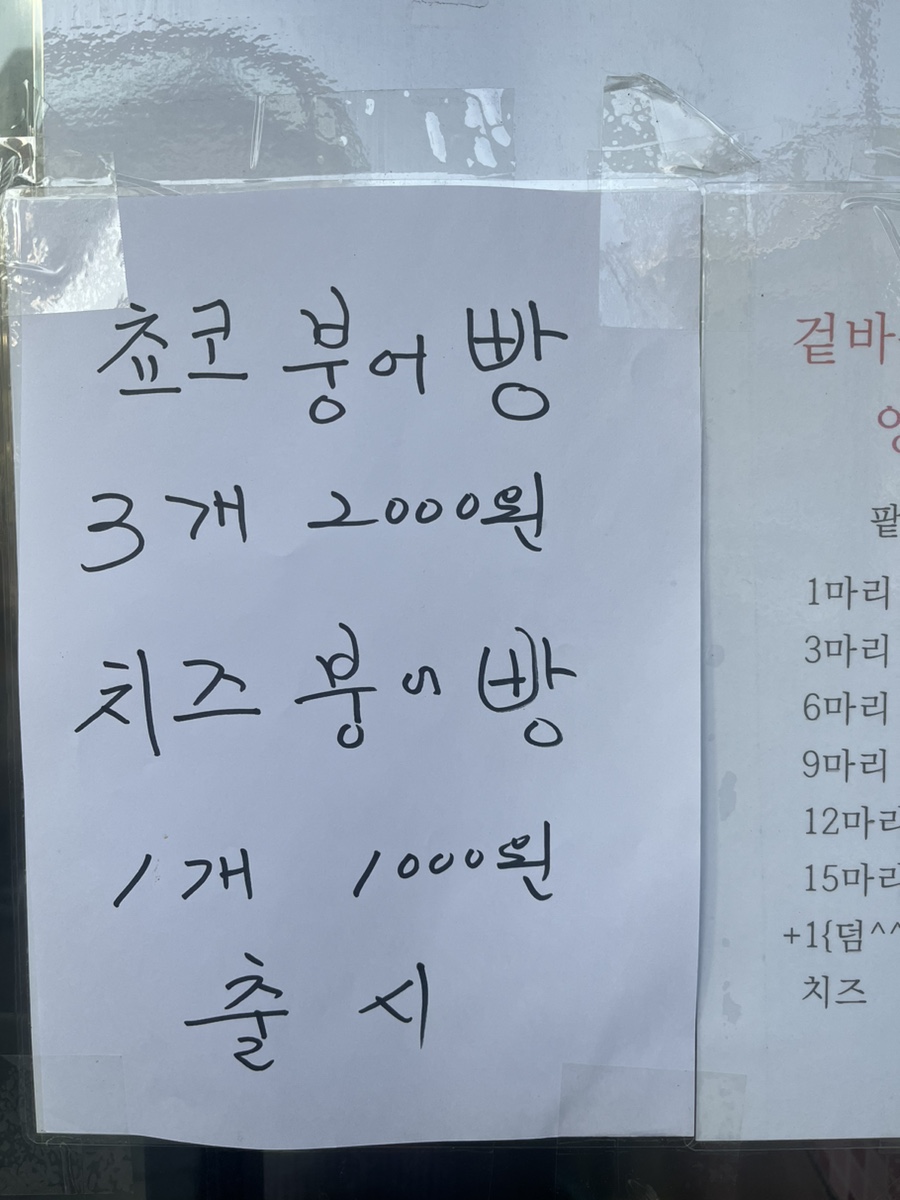 쵸코 붕어빵
3개 2000원
치즈 붕어빵
1개 1000원
출시
겉바
팥
1마리
3마리
6마리
9마리
12마리
15마리
+1{덤^^
치즈